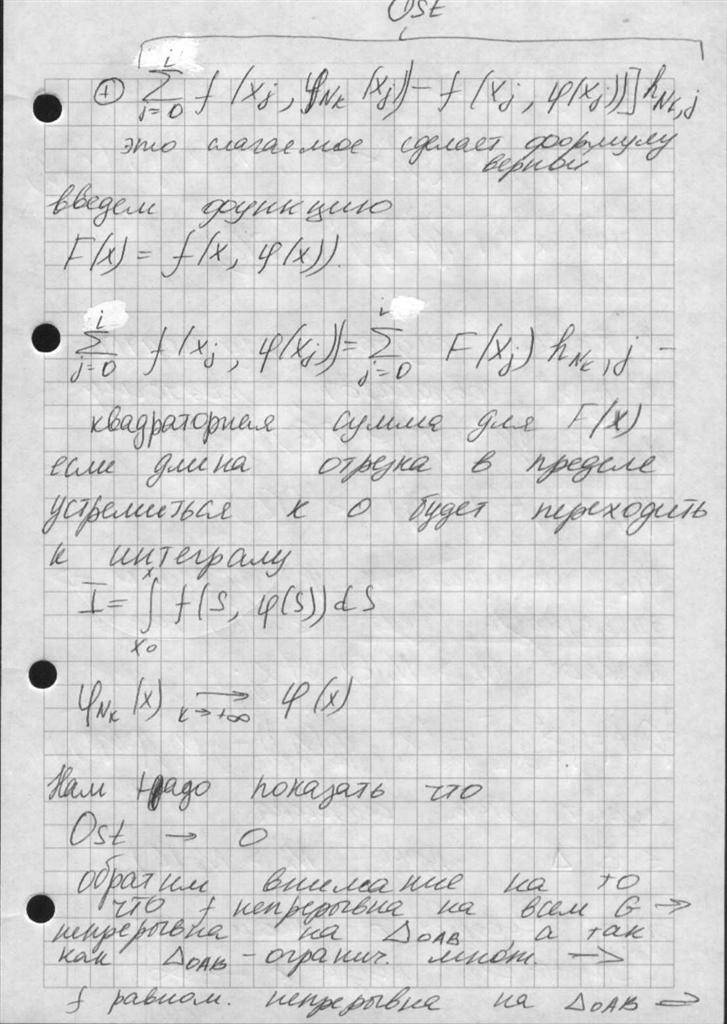 Ost
⊕ i ∑ j=0 f(xj, φNk(xj)) - f(xj, φ(xj))] hNk,j
это слагаемое сделает формулу
верной
введем функцию
F(x) = f(x, φ(x)).
i ∑ j=0 f(xj, φ(xj)) = i ∑ j=0 F(xj) hNk,j -
квадраторная сумма для F(x)
если длина отрезка в пределе
устремиться к 0 будет переходить
к интегралу
I = x ∫ x0 f(S, φ(S)) dS
φNk(x) → k→+∞ φ(x)
Нам надо показать что
Ost → 0
обратим внимание на то
что f непрерывна на всем G →
непрерывна на ΔOAB, а так
как ΔOAB - огранич. множ. →
f равном. непрерывна на ΔOAB →